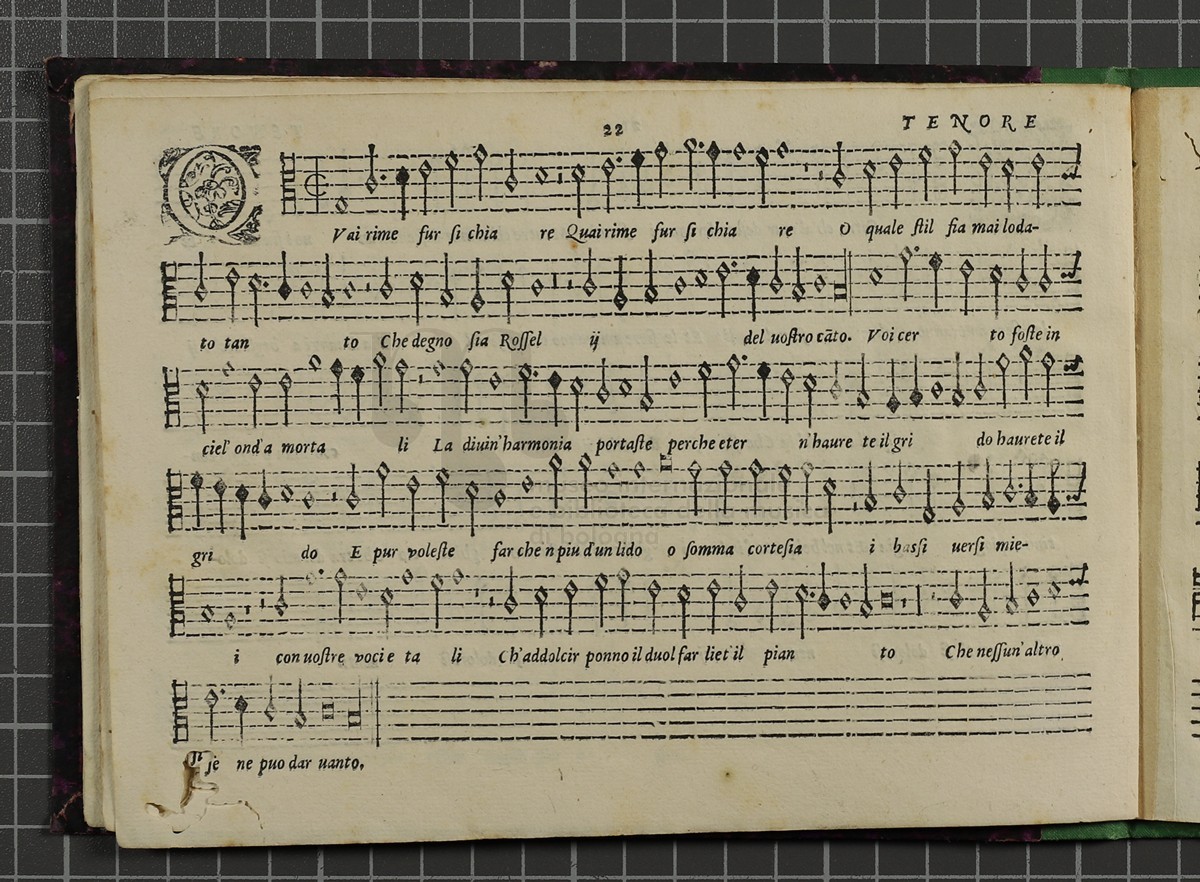 22
TENORE
QVai rime fur si chia re Quai rime fur si chia re O quale stil fia mai loda-
to tan to Che degno sia Rossel ij del uostro cāto. Voi cer to foste in
ciel' ond'a morta li La diuin'harmonia portaste perche eter n'haure te il gri do haurete il
gri do E pur voleste far che n piu d'un lido o somma cortesia i bassi uersi mie-
i con uostre voci e ta li Ch'addolcir ponno il duol far liet'il pian to Che nessun'altro
ne puo dar uanto.